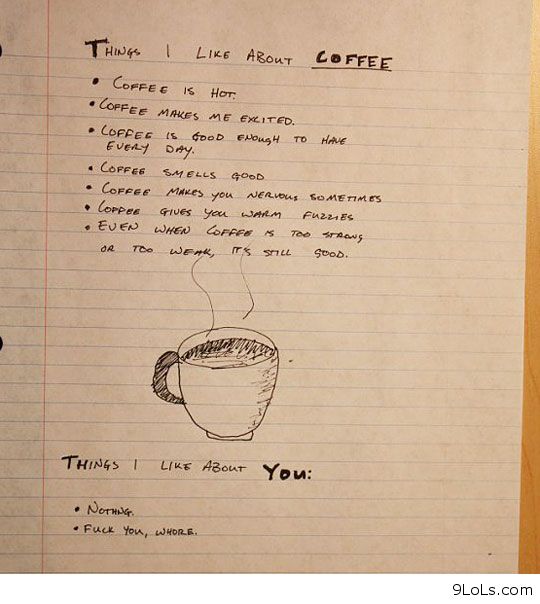 THINGS I LIKE ABOUT COFFEE
• COFFEE IS HOT.
• COFFEE MAKES ME EXCITED.
• COFFEE IS GOOD ENOUGH TO HAVE
EVERY DAY.
• COFFEE SMELLS GOOD
• COFFEE MAKES YOU NERVOUS SOMETIMES
• COFFEE GIVES YOU WARM FUZZIES
• EVEN WHEN COFFEE IS TOO STRONG
OR TOO WEAK, IT'S STILL GOOD.
THINGS I LIKE ABOUT YOU:
• NOTHNG.
• FUCK YOU, WHORE.
9LoLs.com